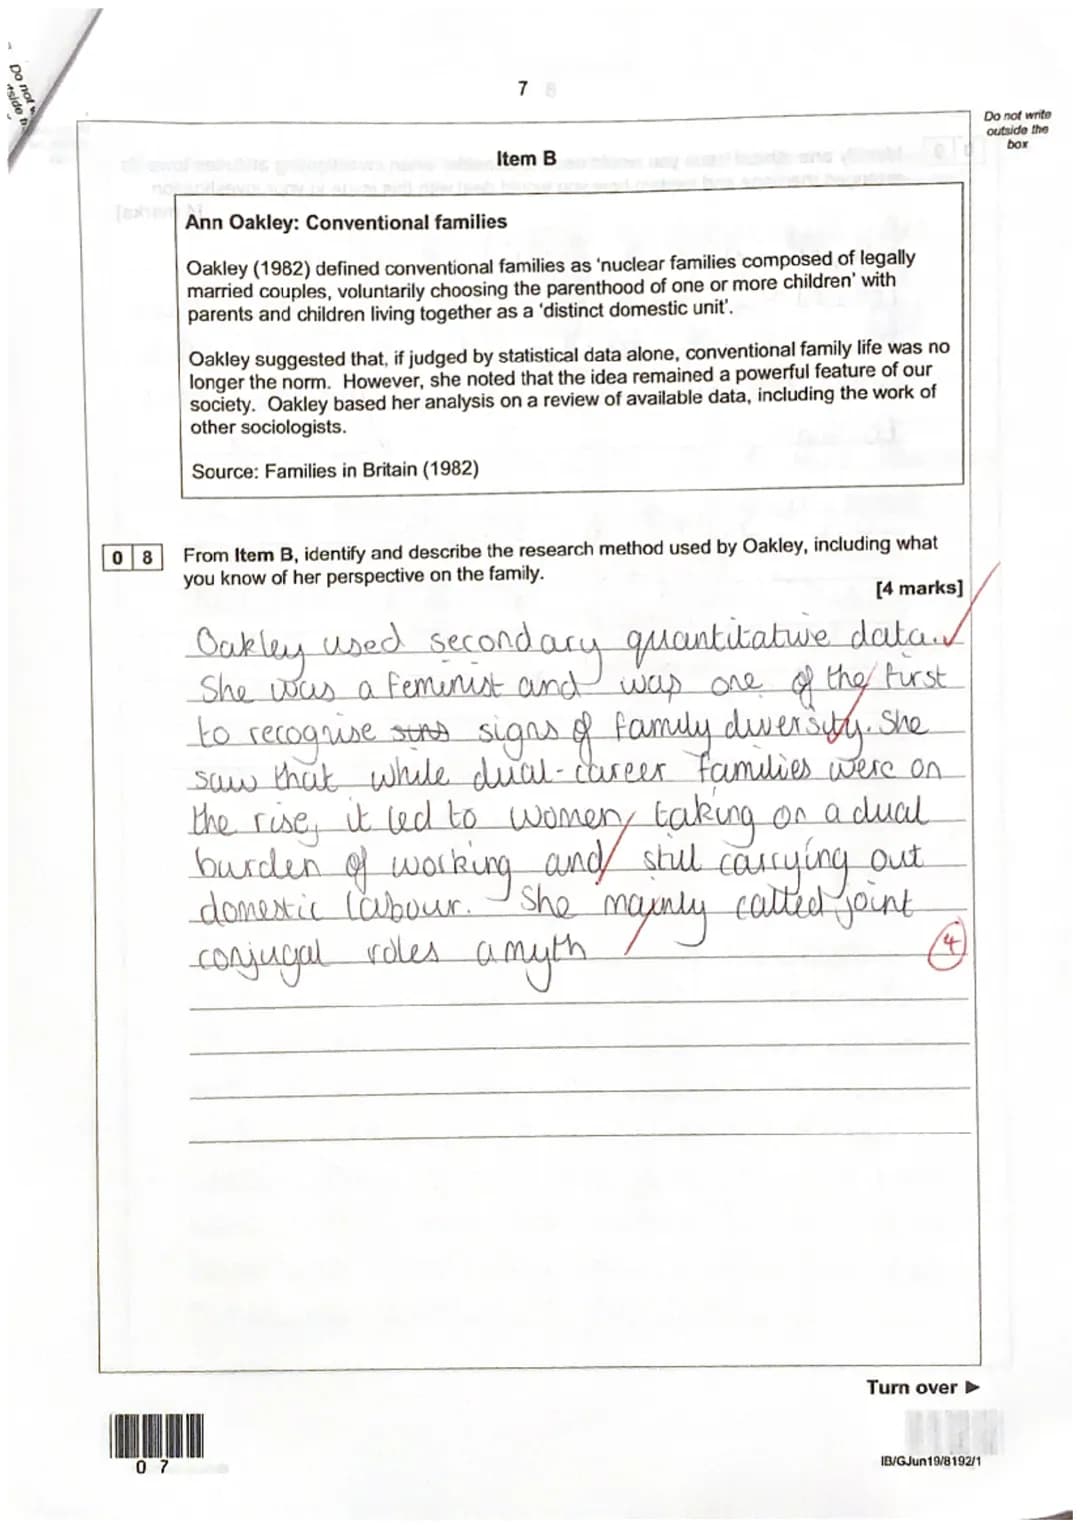 Do not w
tside th
7
Do not write
outside the
box
Item B
Ann Oakley: Conventional families
Oakley (1982) defined conventional families as 'nuclear families composed of legally
married couples, voluntarily choosing the parenthood of one or more children' with
parents and children living together as a 'distinct domestic unit'.
Oakley suggested that, if judged by statistical data alone, conventional family life was no
longer the norm. However, she noted that the idea remained a powerful feature of our
society. Oakley based her analysis on a review of available data, including the work of
other sociologists.
Source: Families in Britain (1982)
0 8 From Item B, identify and describe the research method used by Oakley, including what
you know of her perspective on the family.
[4 marks]
Oakley used secondary quantitative data.
She was a feminist and was one of the first
to recognise signs of family diversity. She
saw that while dual-career families were on
the rise, it led to women taking on a dual
burden of working and still carrying out
domestic labour. She mainly called joint
conjugal roles a myth
4
Turn over ►
0 7
IB/G/Jun19/8192/1